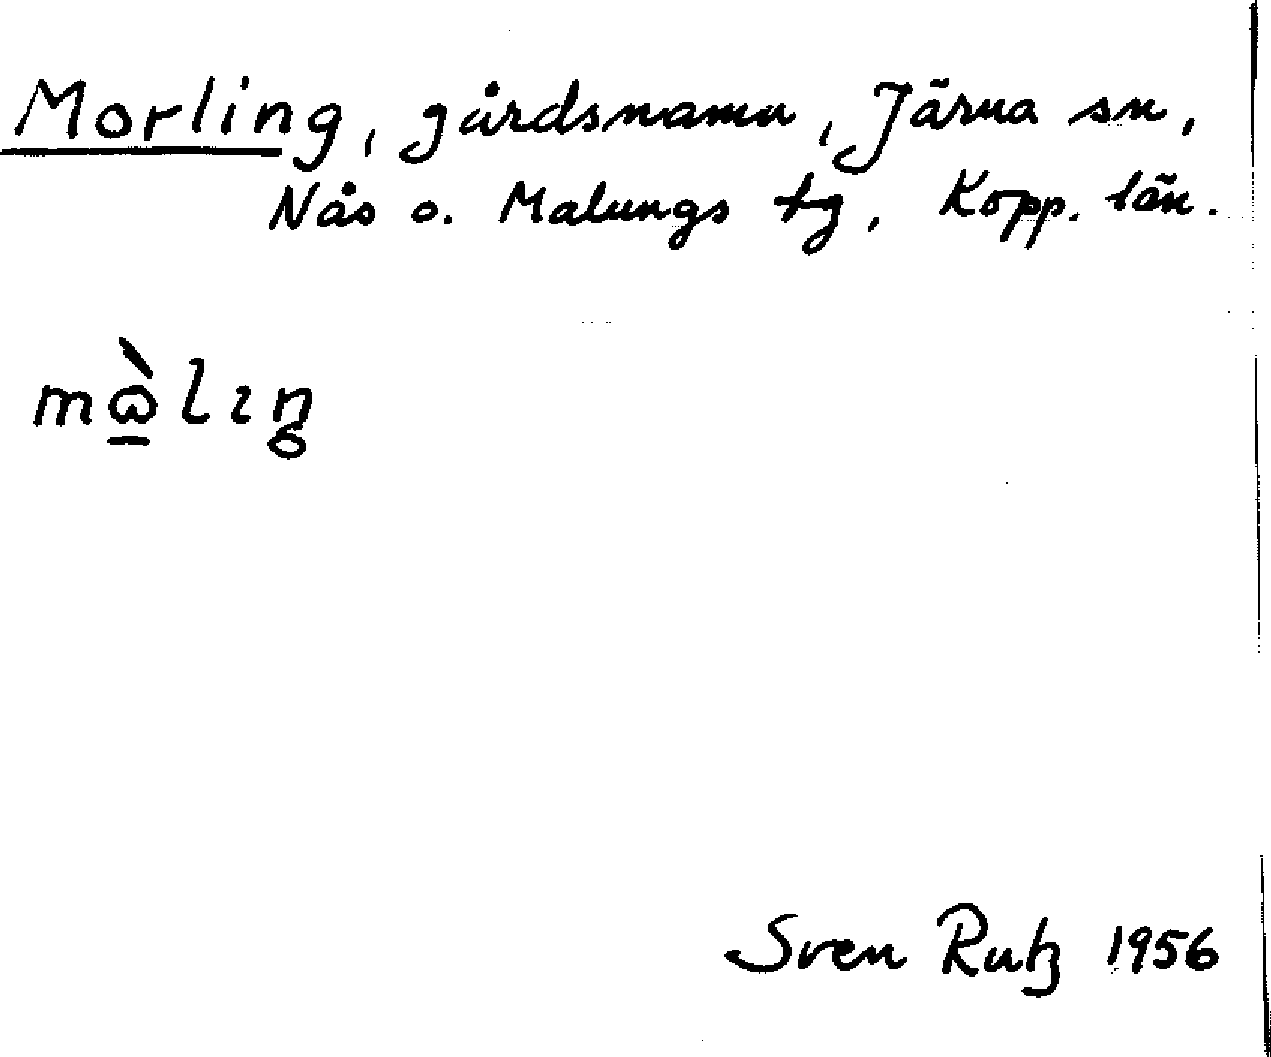 Morling, gårdsnamn, Järna sn,
Nås o. Malungs tg, Kopp. län.
mɷ̯̀lıŋ
Sven Rutz 1956